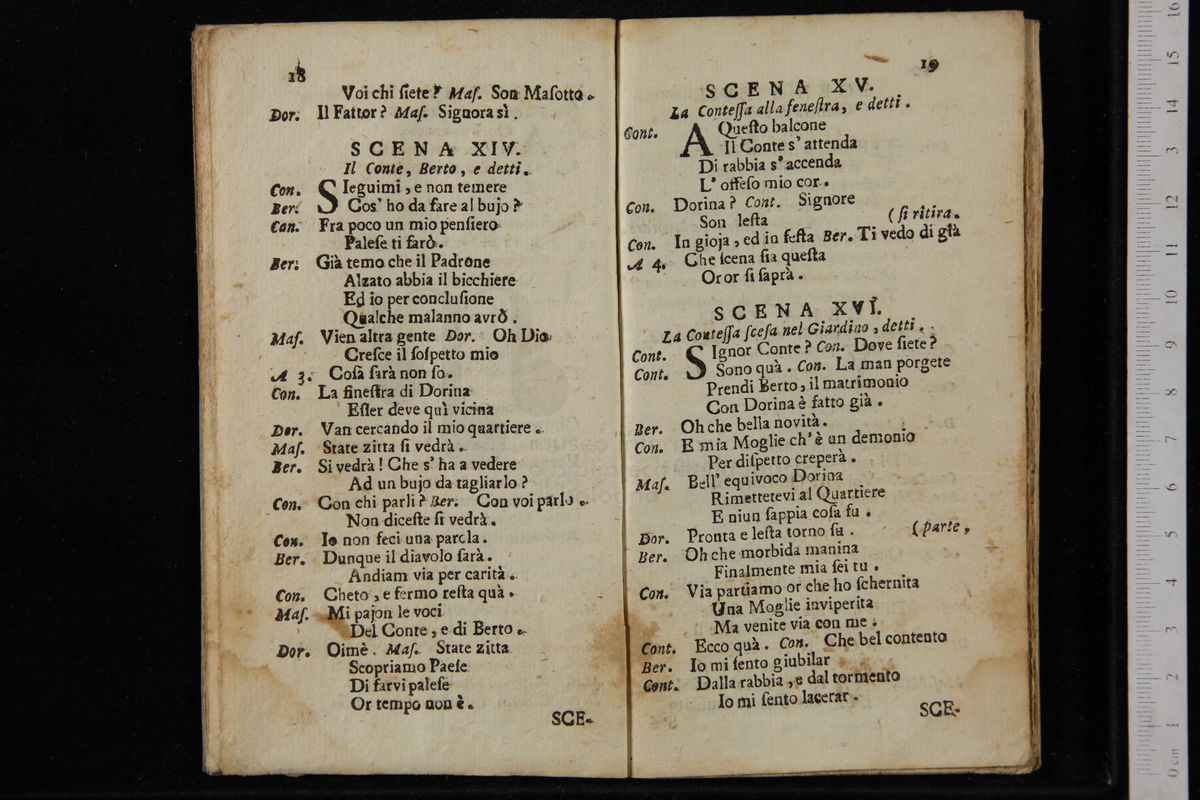 18
Voi chi ſiete? Maſ. Son Maſotto.
Dor. Il Fattor? Maſ. Signora sì.
SCENA XIV.
Il Conte, Berto, e detti.
Con. SIeguimi, e non temere
Ber. Cos' ho da fare al bujo?
Con. Fra poco un mio penſiero
Paleſe ti farò.
Ber. Già temo che il Padrone
Alzato abbia il bicchiere
Ed io per concluſione
Qualche malanno avrò.
Maſ. Vien altra gente Dor. Oh Dio
Creſce il ſoſpetto mio
A 3. Coſa ſarà non ſo.
Con. La fineſtra di Dorina
Eſſer deve quì vicina
Dor. Van cercando il mio quartiere.
Maſ. State zitta ſi vedrà.
Ber. Si vedrà! Che s' ha a vedere
Ad un bujo da tagliarlo?
Con. Con chi parli? Ber. Con voi parlo.
Non diceſte ſi vedrà.
Con. Io non feci una parola.
Ber. Dunque il diavolo ſarà.
Andiam via per carità.
Con. Cheto, e fermo reſta quà.
Maſ. Mi pajon le voci
Del Conte, e di Berto.
Dor. Oimè. Maſ. State zitta
Scopriamo Paeſe
Di farvi paleſe
Or tempo non è.
SCE-
19
SCENA XV.
La Conteſſa alla feneſtra, e detti.
Cont. A Queſto balcone
Il Conte s' attenda
Di rabbia s' accenda
L' offeſo mio cor.
Con. Dorina? Cont. Signore
Son leſta (ſi ritira.
Con. In gioja, ed in feſta Ber. Ti vedo di già
A 4. Che ſcena ſia queſta
Or or ſi ſaprà.
SCENA XVI.
La Conteſſa ſceſa nel Giardino, detti.
Cont. SIgnor Conte? Con. Dove ſiete?
Cont. Sono quà. Con. La man porgete
Prendi Berto, il matrimonio
Con Dorina è fatto già.
Ber. Oh che bella novità.
Con. E mia Moglie ch' è un demonio
Per diſpetto creperà.
Maſ. Bell' equivoco Dorina
Rimettetevi al Quartiere
E niun ſappia coſa fu.
Dor. Pronta e leſta torno ſu. (parte,
Ber. Oh che morbida manina
Finalmente mia ſei tu.
Con. Via partiamo or che ho ſchernita
Una Moglie inviperita
Ma venite via con me.
Cont. Ecco quà. Con. Che bel contento
Ber. Io mi ſento giubilar
Cont. Dalla rabbia, e dal tormento
Io mi ſento lacerar.
SCE-
0 cm 1 2 3 4 5 6 7 8 9 10 11 12 3 14 15 16